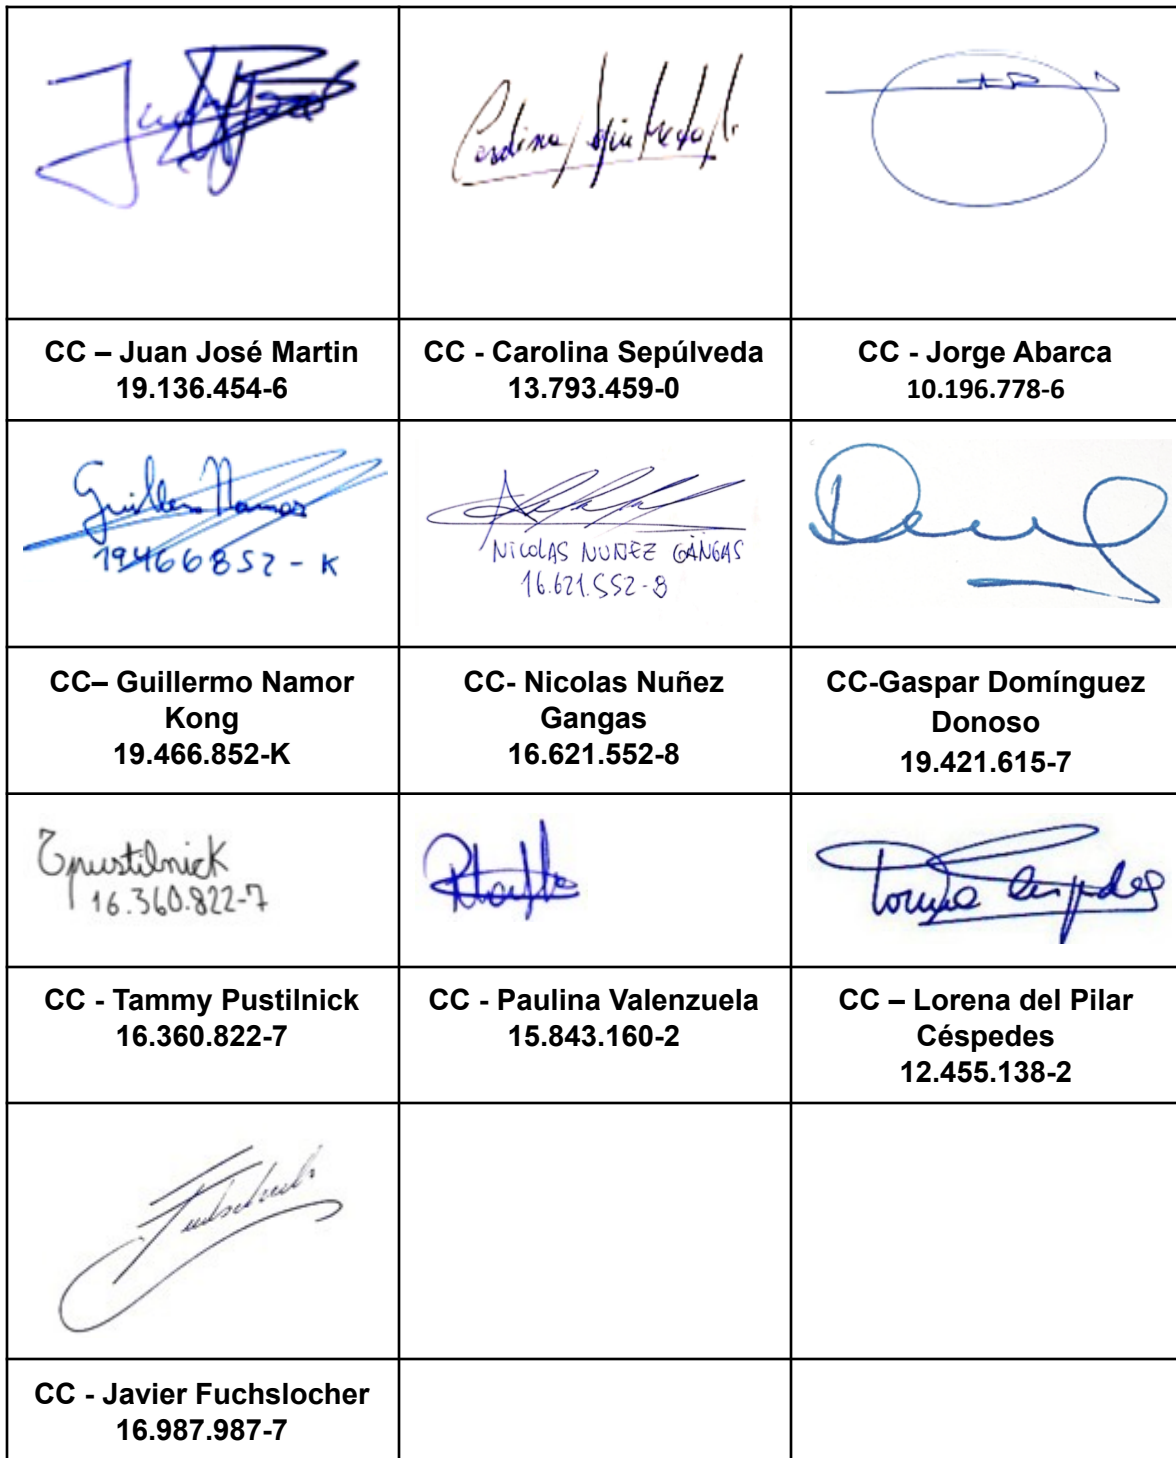 Carolina Sepúlveda
CC – Juan José Martin
19.136.454-6
CC - Carolina Sepúlveda
13.793.459-0
CC - Jorge Abarca
10.196.778-6
Guillermo Namor
19466852-K
NICOLAS NUÑEZ GANGAS
16.621.552-8
CC– Guillermo Namor
Kong
19.466.852-K
CC- Nicolas Nuñez
Gangas
16.621.552-8
CC-Gaspar Domínguez
Donoso
19.421.615-7
Tpustilnick
16.360.822-7
Lorena Céspedes
CC - Tammy Pustilnick
16.360.822-7
CC - Paulina Valenzuela
15.843.160-2
CC – Lorena del Pilar
Céspedes
12.455.138-2
CC - Javier Fuchslocher
16.987.987-7